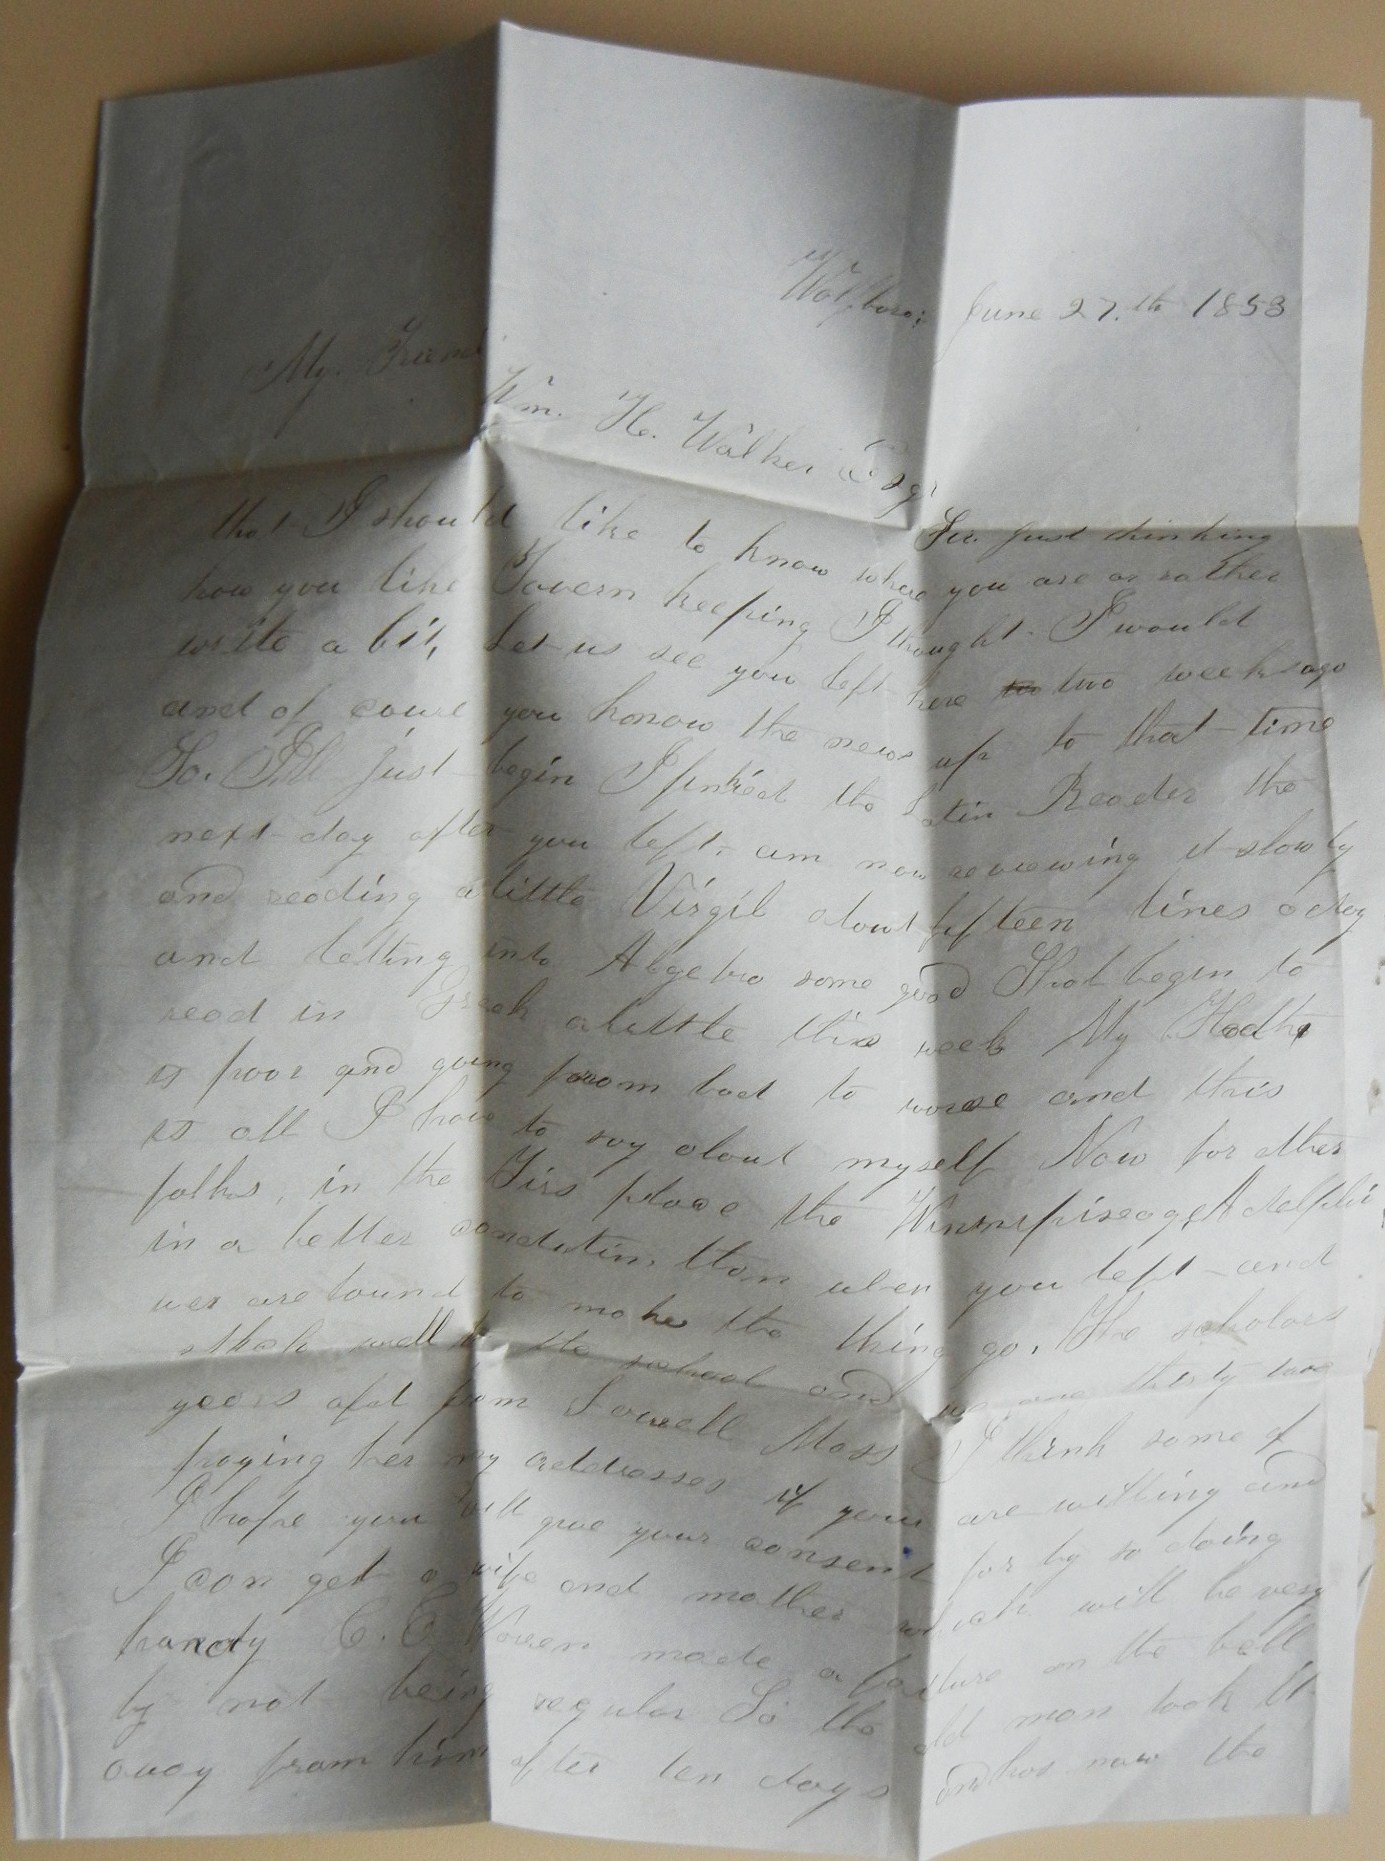 Wolfboro; June 27.th 1853
My. Friend
Wm. H. Walker Esqr
Sir. Just thinking
that I should like to know where you are or rather
how you like Tavern keeping I thought I would
write a bit, Let us see you left here two weeks ago
and of you know the news up to that time
So. I'll just begin I the Latin Reader the
next day after you left am now reviewing it slowly
and reading a little Virgil about fifteen lines a day
and letting into Algebra some good Shal begin to
read in Greek a little this week My
is poor and going from bad to worse and this
is all I have to say about myself Now for other
folks, in the Firs place the
in a better than when you left and
are bound to make the thing go. The scholars
well to the school and we are thirty two
years from Lowell Mass I think some of
paying her my addresses if you are willing and
I hope you will give your consent for by so doing
I can get a wife and mother which will be very
handy C. E. made a failure on the bell
by not being regular So the old man took it
away from him after ten days and has now the